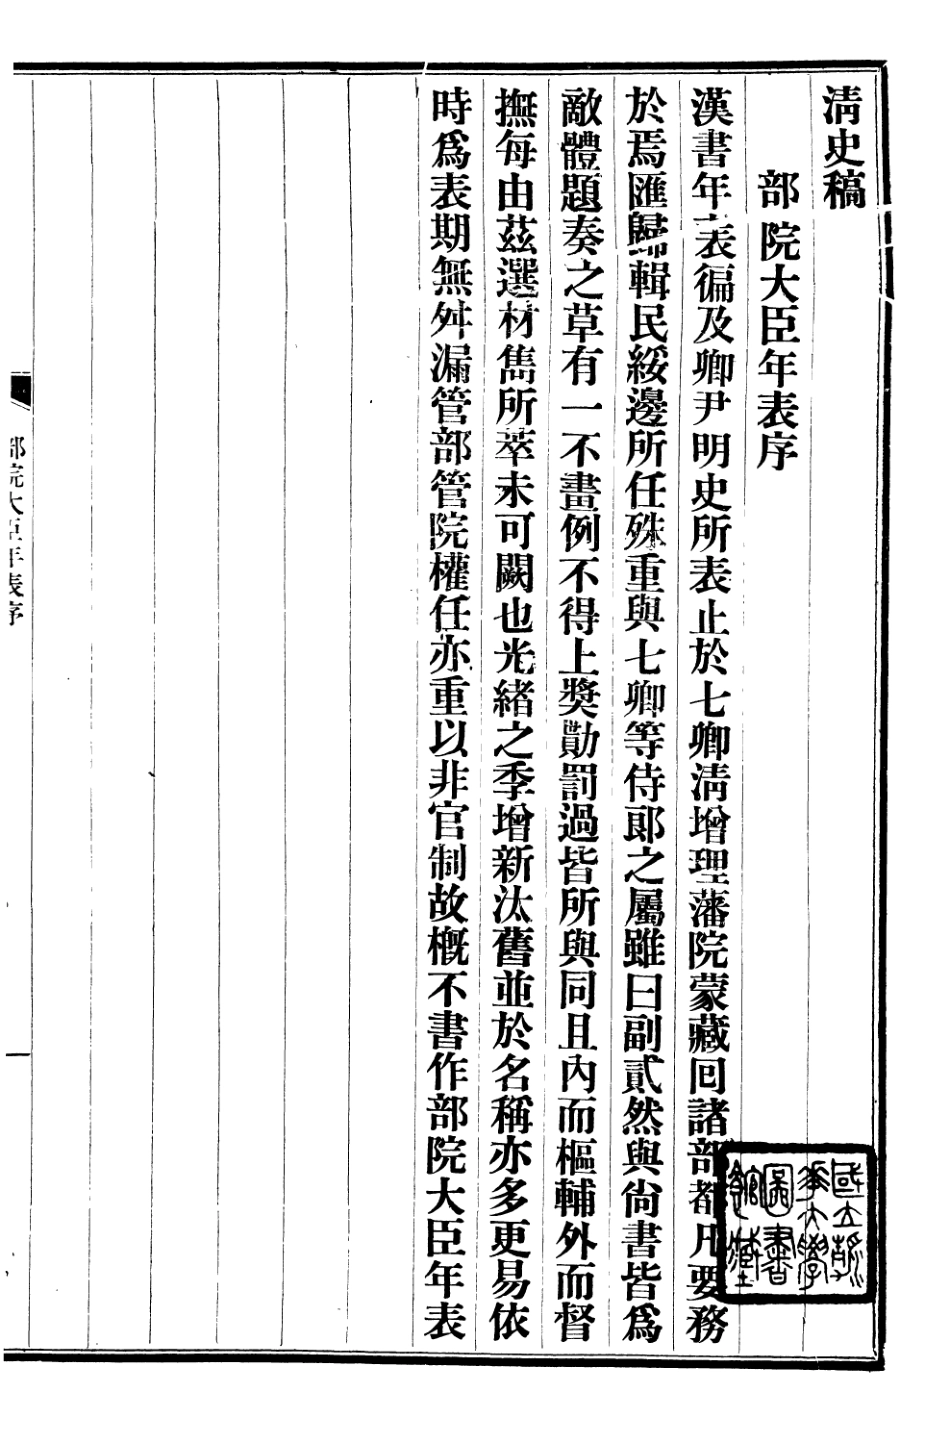 清史稿
部院大臣年表序
漢書年表徧及卿尹明史所表止於七卿清增理藩院蒙藏回諸部都凡要務
於焉匯歸輯民綏邊所任殊重與七卿等侍郎之屬雖曰副貳然與尙書皆爲
敵體題奏之草有一不畫例不得上獎勛罰過皆所與同且內而樞輔外而督
撫每由茲選材雋所萃未可闕也光緒之季增新汰舊並於名稱亦多更易依
時爲表期無舛漏管部管院權任亦重以非官制故槪不書作部院大臣年表
部院大臣年表序
一
國立清華大學圖書館藏